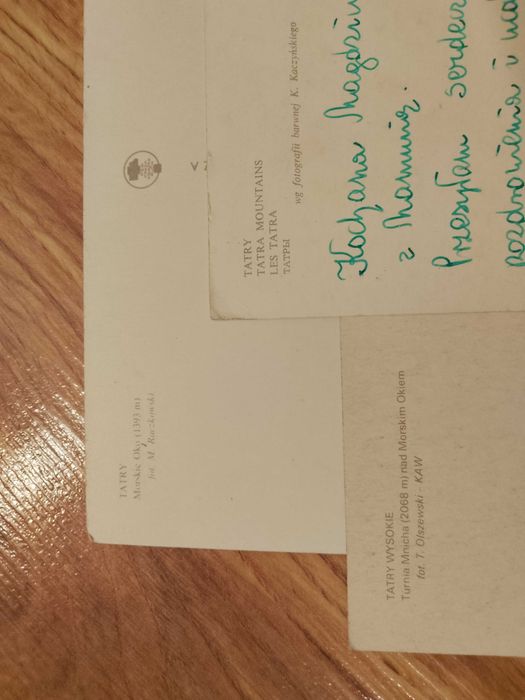 TATRY
TATRA MOUNTAINS
LES TATRA
ТАТРЫ
wg fotografii barwnej K. Kaczyńskiego
Kochana
z Mamusią.
Przesyłam serdecz
pozdrowienia i
TATRY
Morskie Oko (1393 m)
fot. M. Raczkowski
TATRY WYSOKIE
Turnia Mnicha (2068 m) nad Morskim Okiem
fot. T. Olszewski - KAW